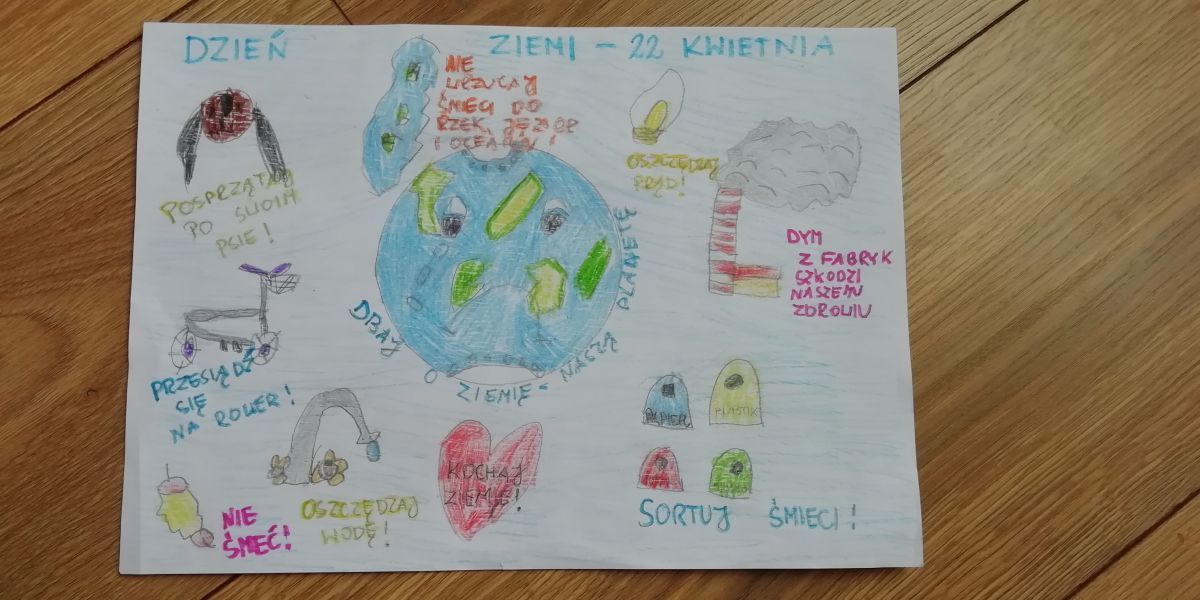 DZIEŃ ZIEMI - 22 KWIETNIA
NIE
WRZUCAJ
ŚMIECI DO
RZEK, JEZIOR
I OCEANÓW!
OSZCZĘDZAJ
PRĄD!
POSPRZĄTAJ
PO SWOIM
PSIE!
DYM
Z FABRYK
SZKODZI
NASZEMU
ZDROWIU
DBAJ O ZIEMIĘ - NASZĄ PLANETĘ
PRZESIĄDŹ
SIĘ
NA ROWER!
PAPIER
PLASTIK
KOCHAJ
ZIEMIĘ!
OSZCZĘDZAJ
WODĘ!
NIE
ŚMIEĆ!
SORTUJ ŚMIECI!